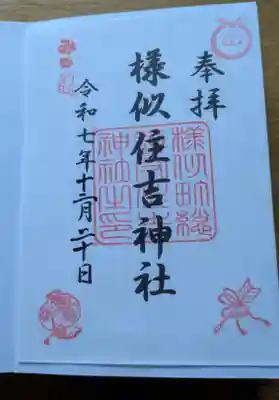 奉拝
様似住吉神社
令和七年十二月二十日
様似町総
神社之印